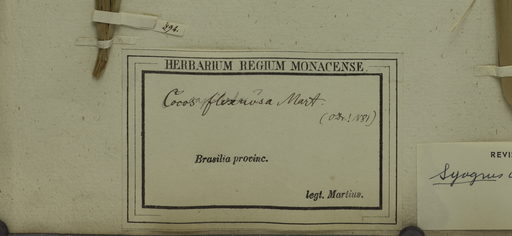 294.
HERBARIUM REGIUM MONACENSE.
Cocos flexuosa Mart.
Brasilia provinc.
legt. Martius.
REVIS
Syagrus